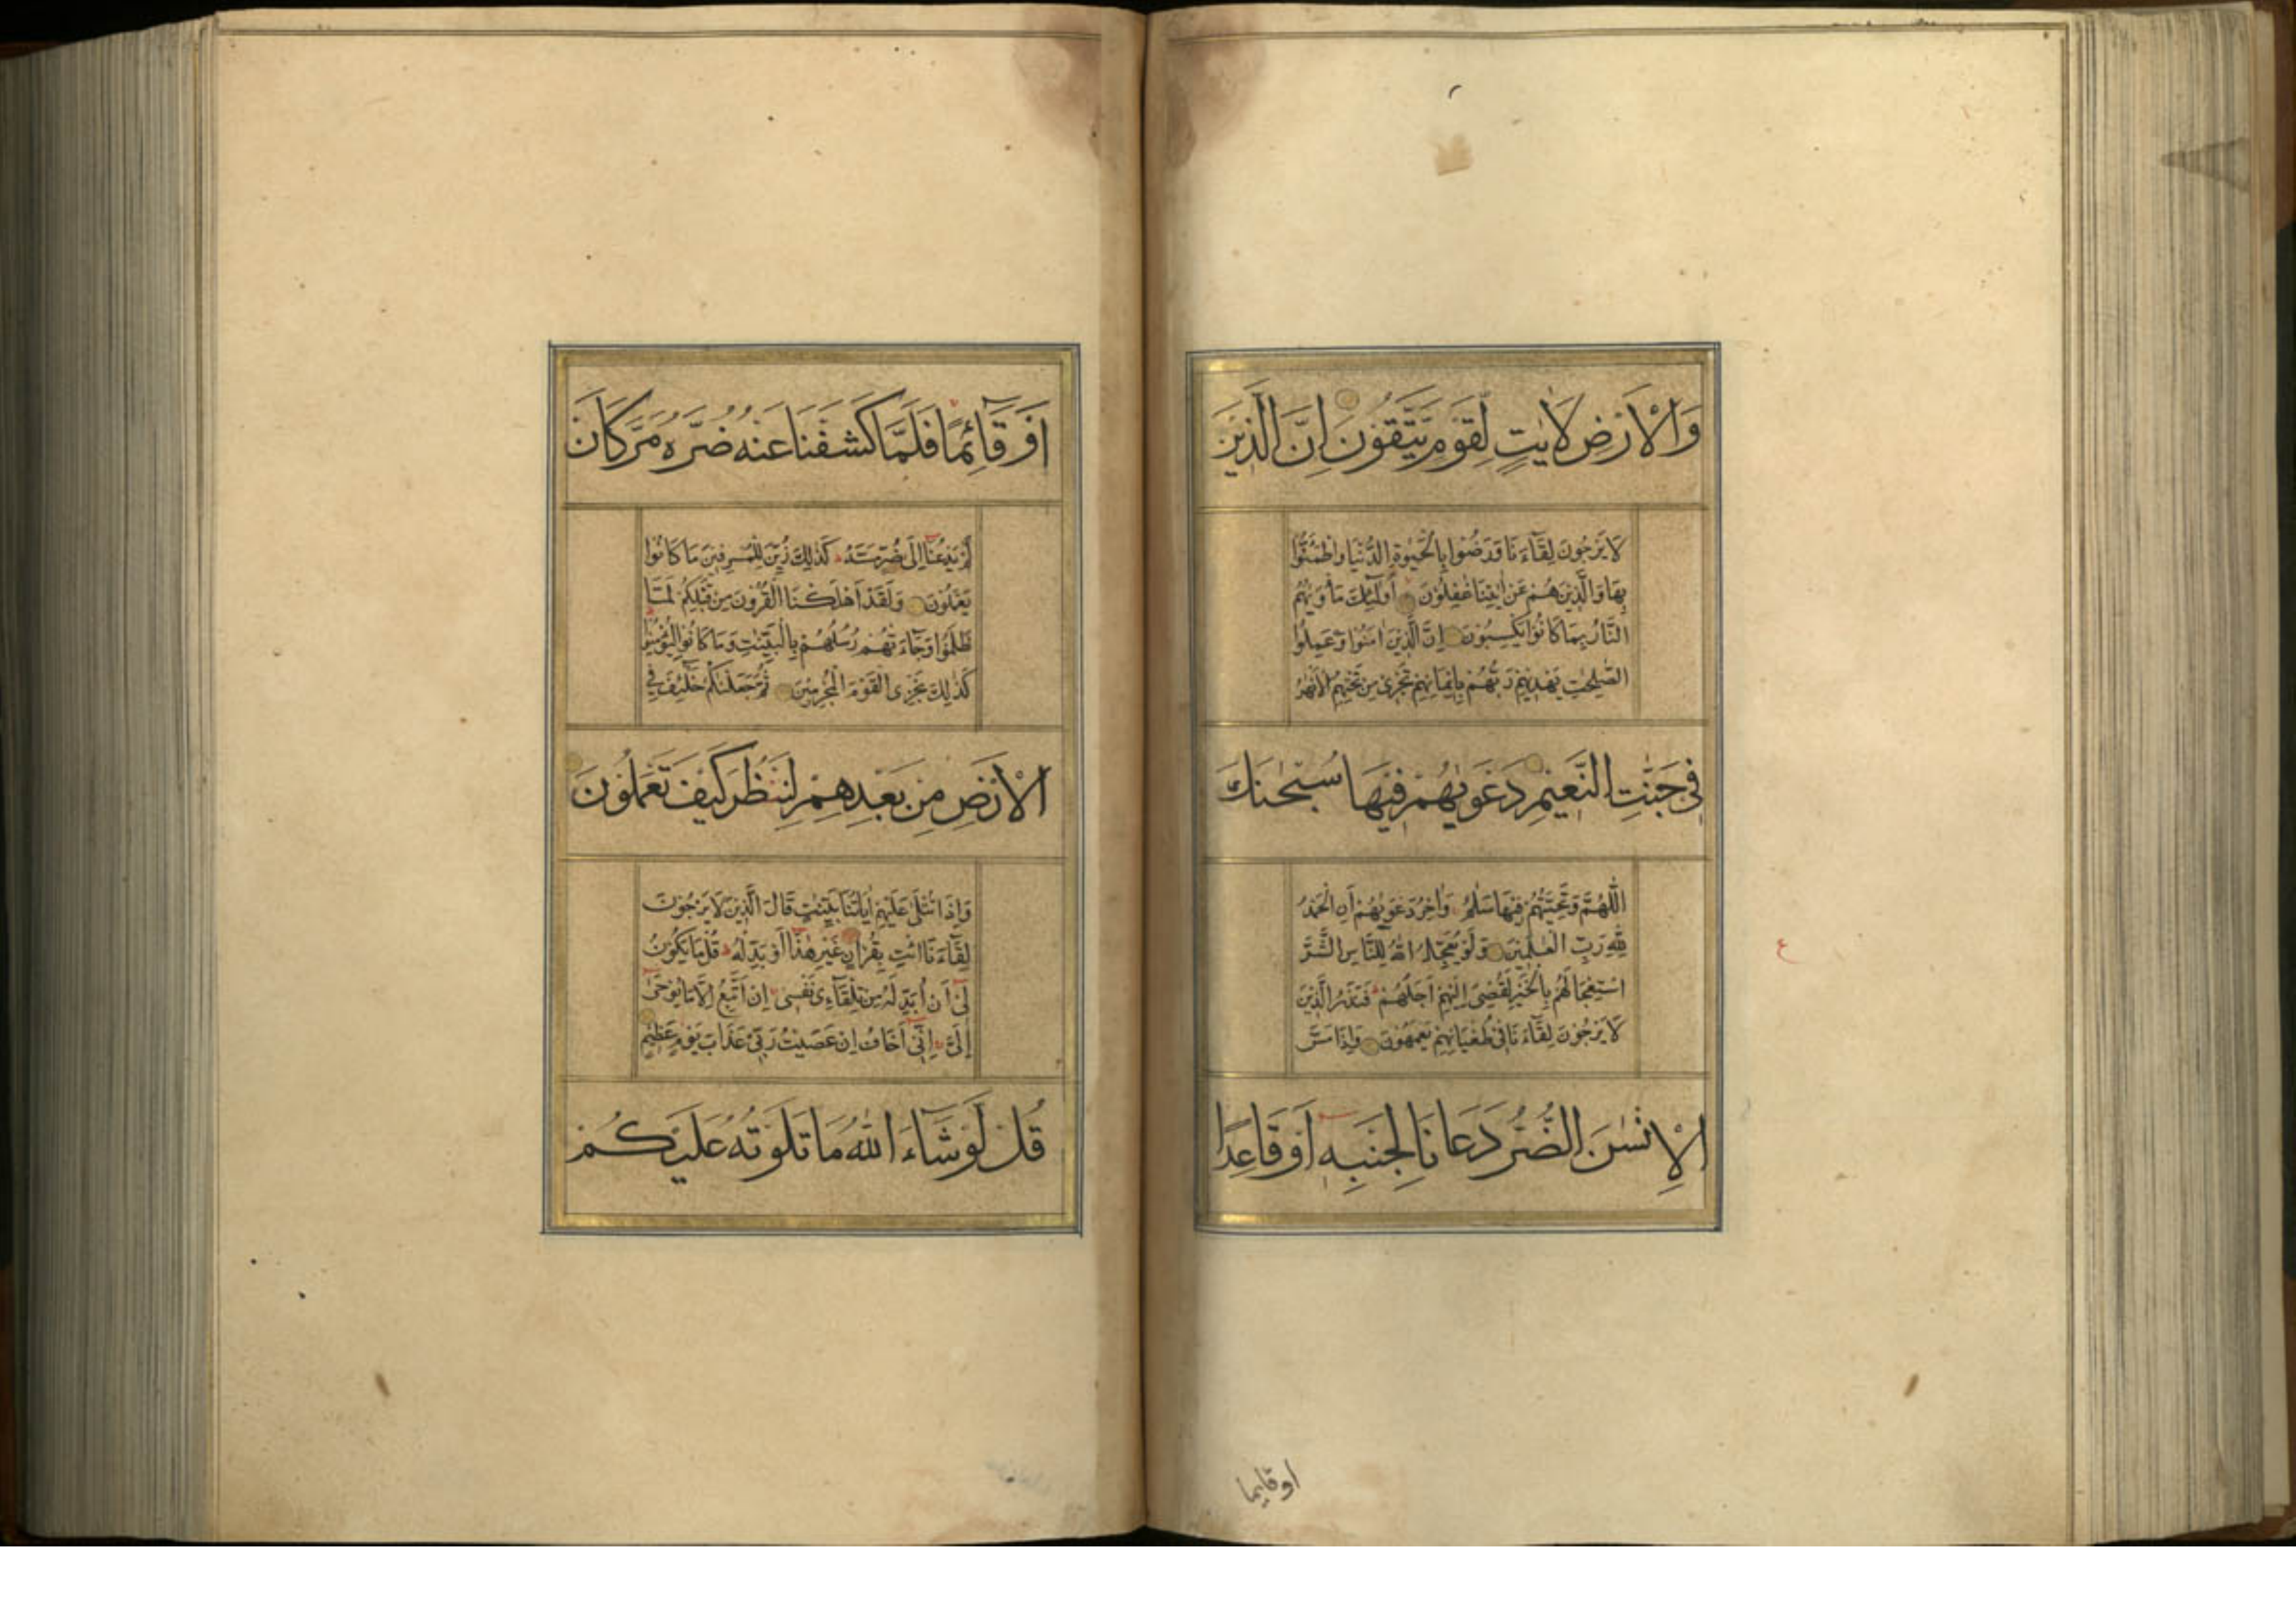 وَالْاَرْضِ لَاٰيٰتٍ لِقَوْمٍ يَتَّقُوْنَ اِنَّ الَّذِيْنَ
لَا يَرْجُوْنَ لِقَآءَنَا وَرَضُوْا بِالْحَيٰوةِ الدُّنْيَا وَاطْمَئَنُّوْا
بِهَا وَالَّذِيْنَ هُمْ عَنْ اٰيٰتِنَا غٰفِلُوْنَ اُولٰٓئِكَ مَأْوٰيهُمُ
النَّارُ بِمَا كَانُوْا يَكْسِبُوْنَ اِنَّ الَّذِيْنَ اٰمَنُوْا وَعَمِلُوا
الصّٰلِحٰتِ يَهْدِيْهِمْ رَبُّهُمْ بِاِيْمَانِهِمْ تَجْرِيْ مِنْ تَحْتِهِمُ الْاَنْهٰرُ
فِيْ جَنّٰتِ النَّعِيْمِ دَعْوٰيهُمْ فِيْهَا سُبْحٰنَكَ
اللّٰهُمَّ وَتَحِيَّتُهُمْ فِيْهَا سَلٰمٌ وَاٰخِرُ دَعْوٰيهُمْ اَنِ الْحَمْدُ
لِلّٰهِ رَبِّ الْعٰلَمِيْنَ وَلَوْ يُعَجِّلُ اللّٰهُ لِلنَّاسِ الشَّرَّ
اسْتِعْجَالَهُمْ بِالْخَيْرِ لَقُضِيَ اِلَيْهِمْ اَجَلُهُمْ فَنَذَرُ الَّذِيْنَ
لَا يَرْجُوْنَ لِقَآءَنَا فِيْ طُغْيَانِهِمْ يَعْمَهُوْنَ وَاِذَا مَسَّ
الْاِنْسٰنَ الضُّرُّ دَعَانَا لِجَنْبِهٖ اَوْ قَاعِدًا
ع
اوقايما
اَوْ قَآئِمًا فَلَمَّا كَشَفْنَا عَنْهُ ضُرَّهُ مَرَّ كَاَنْ
لَمْ يَدْعُنَا اِلٰى ضُرٍّ مَسَّهُ كَذٰلِكَ زُيِّنَ لِلْمُسْرِفِيْنَ مَا كَانُوْا
يَعْمَلُوْنَ وَلَقَدْ اَهْلَكْنَا الْقُرُوْنَ مِنْ قَبْلِكُمْ لَمَّا
ظَلَمُوْا وَجَآءَتْهُمْ رُسُلُهُمْ بِالْبَيِّنٰتِ وَمَا كَانُوْا لِيُؤْمِنُوْا
كَذٰلِكَ نَجْزِي الْقَوْمَ الْمُجْرِمِيْنَ ثُمَّ جَعَلْنٰكُمْ خَلٰٓئِفَ فِي
الْاَرْضِ مِنْ بَعْدِهِمْ لِنَنْظُرَ كَيْفَ تَعْمَلُوْنَ
وَاِذَا تُتْلٰى عَلَيْهِمْ اٰيَاتُنَا بَيِّنٰتٍ قَالَ الَّذِيْنَ لَا يَرْجُوْنَ
لِقَآءَنَا ائْتِ بِقُرْاٰنٍ غَيْرِ هٰذَا اَوْ بَدِّلْهُ قُلْ مَا يَكُوْنُ
لِيْ اَنْ اُبَدِّلَهُ مِنْ تِلْقَآءِ نَفْسِيْ اِنْ اَتَّبِعُ اِلَّا مَا يُوْحٰى
اِلَيَّ اِنِّيْ اَخَافُ اِنْ عَصَيْتُ رَبِّيْ عَذَابَ يَوْمٍ عَظِيْمٍ
قُلْ لَوْ شَآءَ اللّٰهُ مَا تَلَوْتُهُ عَلَيْكُمْ